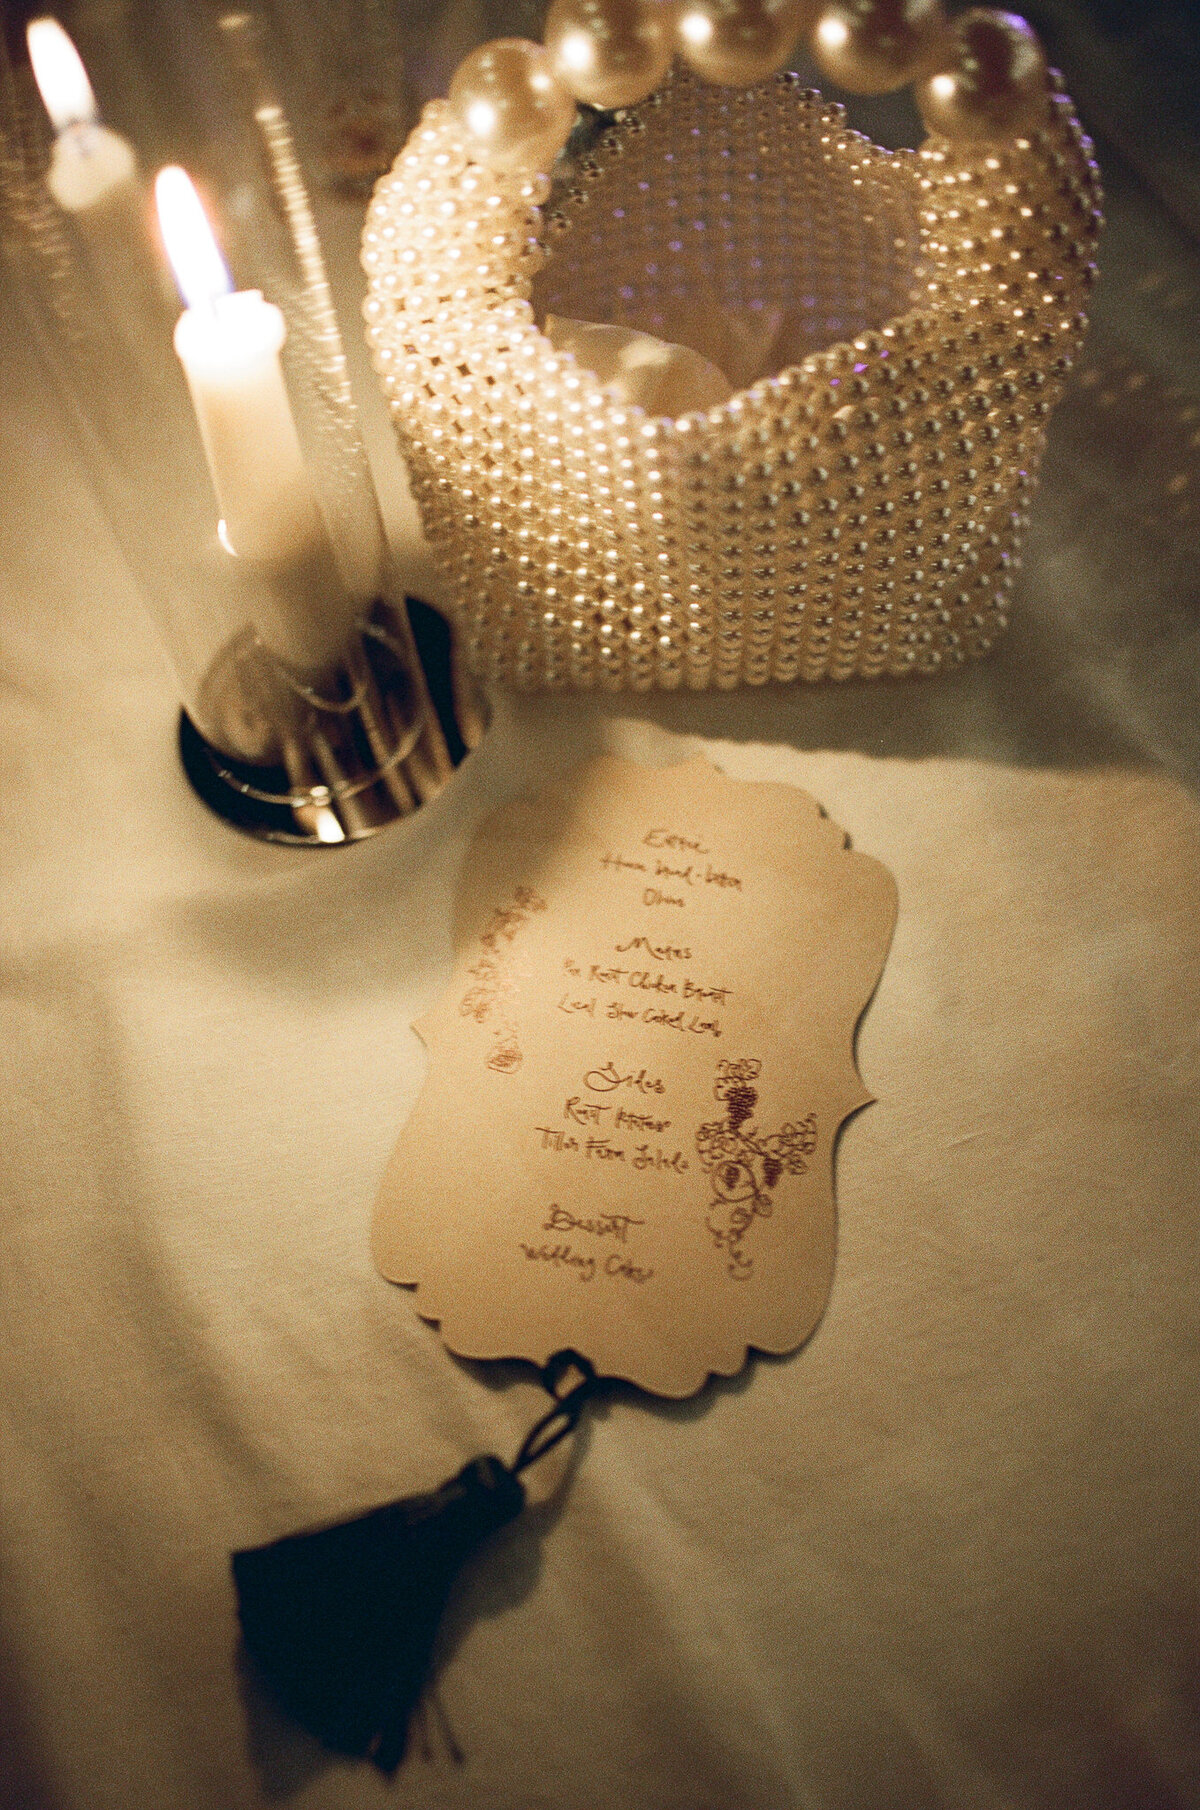 Entree
Olives
Mains
Roast Chicken Breast
Local Slow Cooked Lamb
Sides
Roast Potatoes
Farm Salads
Dessert
Wedding Cake